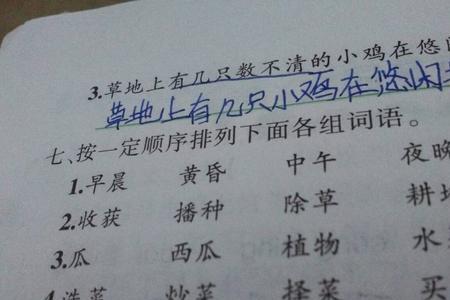 3.草地上有几只数不清的小鸡在悠
草地上有几只小鸡在悠闲
七、按一定顺序排列下面各组词语。
1.早晨 黄昏 中午 夜晚
2.收获 播种 除草 耕
3.瓜 西瓜 植物 水
洗菜 炒菜 择菜 买